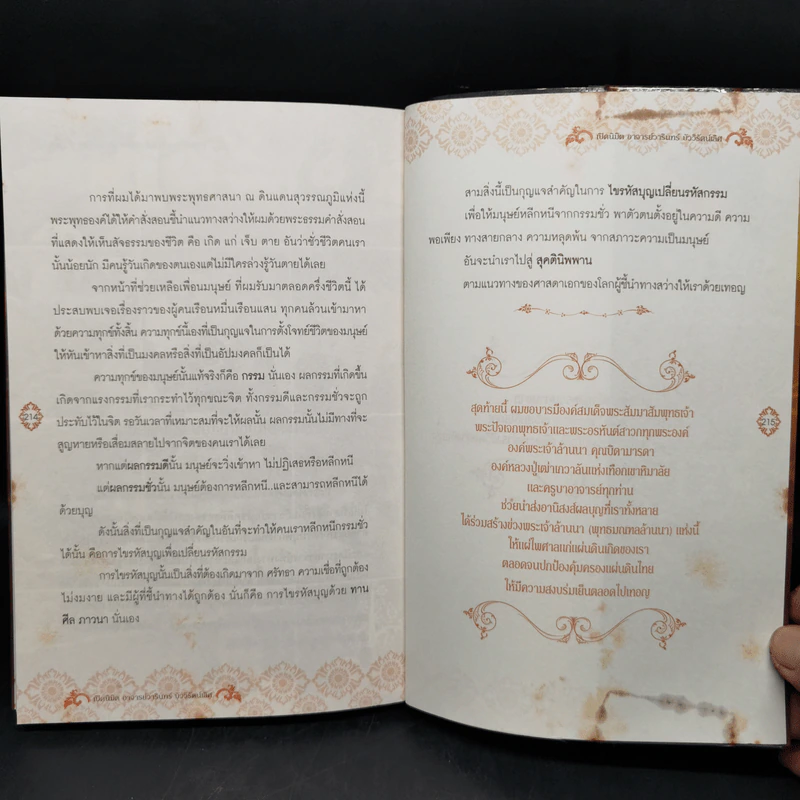 การที่ผมได้มาพบพระพุทธศาสนา ณ ดินแดนสุวรรณภูมิแห่งนี้
พระพุทธองค์ได้ให้คำสั่งสอนชี้นำแนวทางสว่างให้ผมด้วยพระธรรมคำสั่งสอน
ที่แสดงให้เห็นสัจธรรมของชีวิต คือ เกิด แก่ เจ็บ ตาย อันว่าชั่วชีวิตคนเรา
นั้นน้อยนัก มีคนรู้วันเกิดของตนเองแต่ไม่มีใครล่วงรู้วันตายได้เลย
จากหน้าที่ช่วยเหลือเพื่อนมนุษย์ ที่ผมรับมาตลอดครึ่งชีวิตนี้ ได้
ประสบพบเจอเรื่องราวของผู้คนเรือนหมื่นเรือนแสน ทุกคนล้วนเข้ามาหา
ด้วยความทุกข์ทั้งสิ้น ความทุกข์นี้เองที่เป็นกุญแจในการตั้งโจทย์ชีวิตของมนุษย์
ให้หันเข้าหาสิ่งที่เป็นมงคลหรือสิ่งที่เป็นอัปมงคลก็เป็นได้
ความทุกข์ของมนุษย์นั้นแท้จริงก็คือ กรรม นั่นเอง ผลกรรมที่เกิดขึ้น
เกิดจากแรงกรรมที่เรากระทำไว้ทุกขณะจิต ทั้งกรรมดีและกรรมชั่วจะถูก
ประทับไว้ในจิต รอวันเวลาที่เหมาะสมที่จะให้ผลนั้น ผลกรรมนั้นไม่มีทางที่จะ
สูญหายหรือเสื่อมสลายไปจากจิตของคนเราได้เลย
หากแต่ผลกรรมดีนั้น มนุษย์จะวิ่งเข้าหา ไม่ปฏิเสธหรือหลีกหนี
แต่ผลกรรมชั่วนั้น มนุษย์ต้องการหลีกหนี..และสามารถหลีกหนีได้
ด้วยบุญ
ดังนั้นสิ่งที่เป็นกุญแจสำคัญในอันที่จะทำให้คนเราหลีกหนีกรรมชั่ว
ได้นั้น คือการไขรหัสบุญเพื่อเปลี่ยนรหัสกรรม
การไขรหัสบุญนั้นเป็นสิ่งที่ต้องเกิดมาจาก ศรัทธา ความเชื่อที่ถูกต้อง
ไม่งมงาย และมีผู้ที่ชี้นำทางได้ถูกต้อง นั่นก็คือ การไขรหัสบุญด้วย ทาน
ศีล ภาวนา นั่นเอง
214
เปิดนิมิต อาจารย์วารินทร์ บัววิรัตน์เลิศ
เปิดนิมิต อาจารย์วารินทร์ บัววิรัตน์เลิศ
สามสิ่งนี้เป็นกุญแจสำคัญในการ ไขรหัสบุญเปลี่ยนรหัสกรรม
เพื่อให้มนุษย์หลีกหนีจากกรรมชั่ว พาตัวตนตั้งอยู่ในความดี ความ
พอเพียง ทางสายกลาง ความหลุดพ้น จากสภาวะความเป็นมนุษย์
อันจะนำเราไปสู่ สุคตินิพพาน
ตามแนวทางของศาสดาเอกของโลกผู้ชี้นำทางสว่างให้เราด้วยเทอญ
สุดท้ายนี้ ผมขอบารมีองค์สมเด็จพระสัมมาสัมพุทธเจ้า
พระปัจเจกพุทธเจ้าและพระอรหันต์สาวกทุกพระองค์
องค์พระเจ้าล้านนา คุณบิดามารดา
องค์หลวงปู่เฒ่ายาวาลันแห่งเทือกเขาหิมาลัย
และครูบาอาจารย์ทุกท่าน
ช่วยนำส่งอานิสงส์ผลบุญที่เราทั้งหลาย
ได้ร่วมสร้างข่วงพระเจ้าล้านนา (พุทธมณฑลล้านนา) แห่งนี้
ให้แผ่ไพศาลแก่แผ่นดินเกิดของเรา
ตลอดจนปกป้องคุ้มครองแผ่นดินไทย
ให้มีความสงบร่มเย็นตลอดไปเทอญ
215